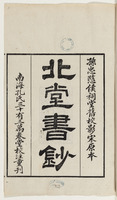 孫忠愍侯祠堂舊校影宋原本
北堂書鈔
南海孔氏三十有三萬卷堂校注重刊